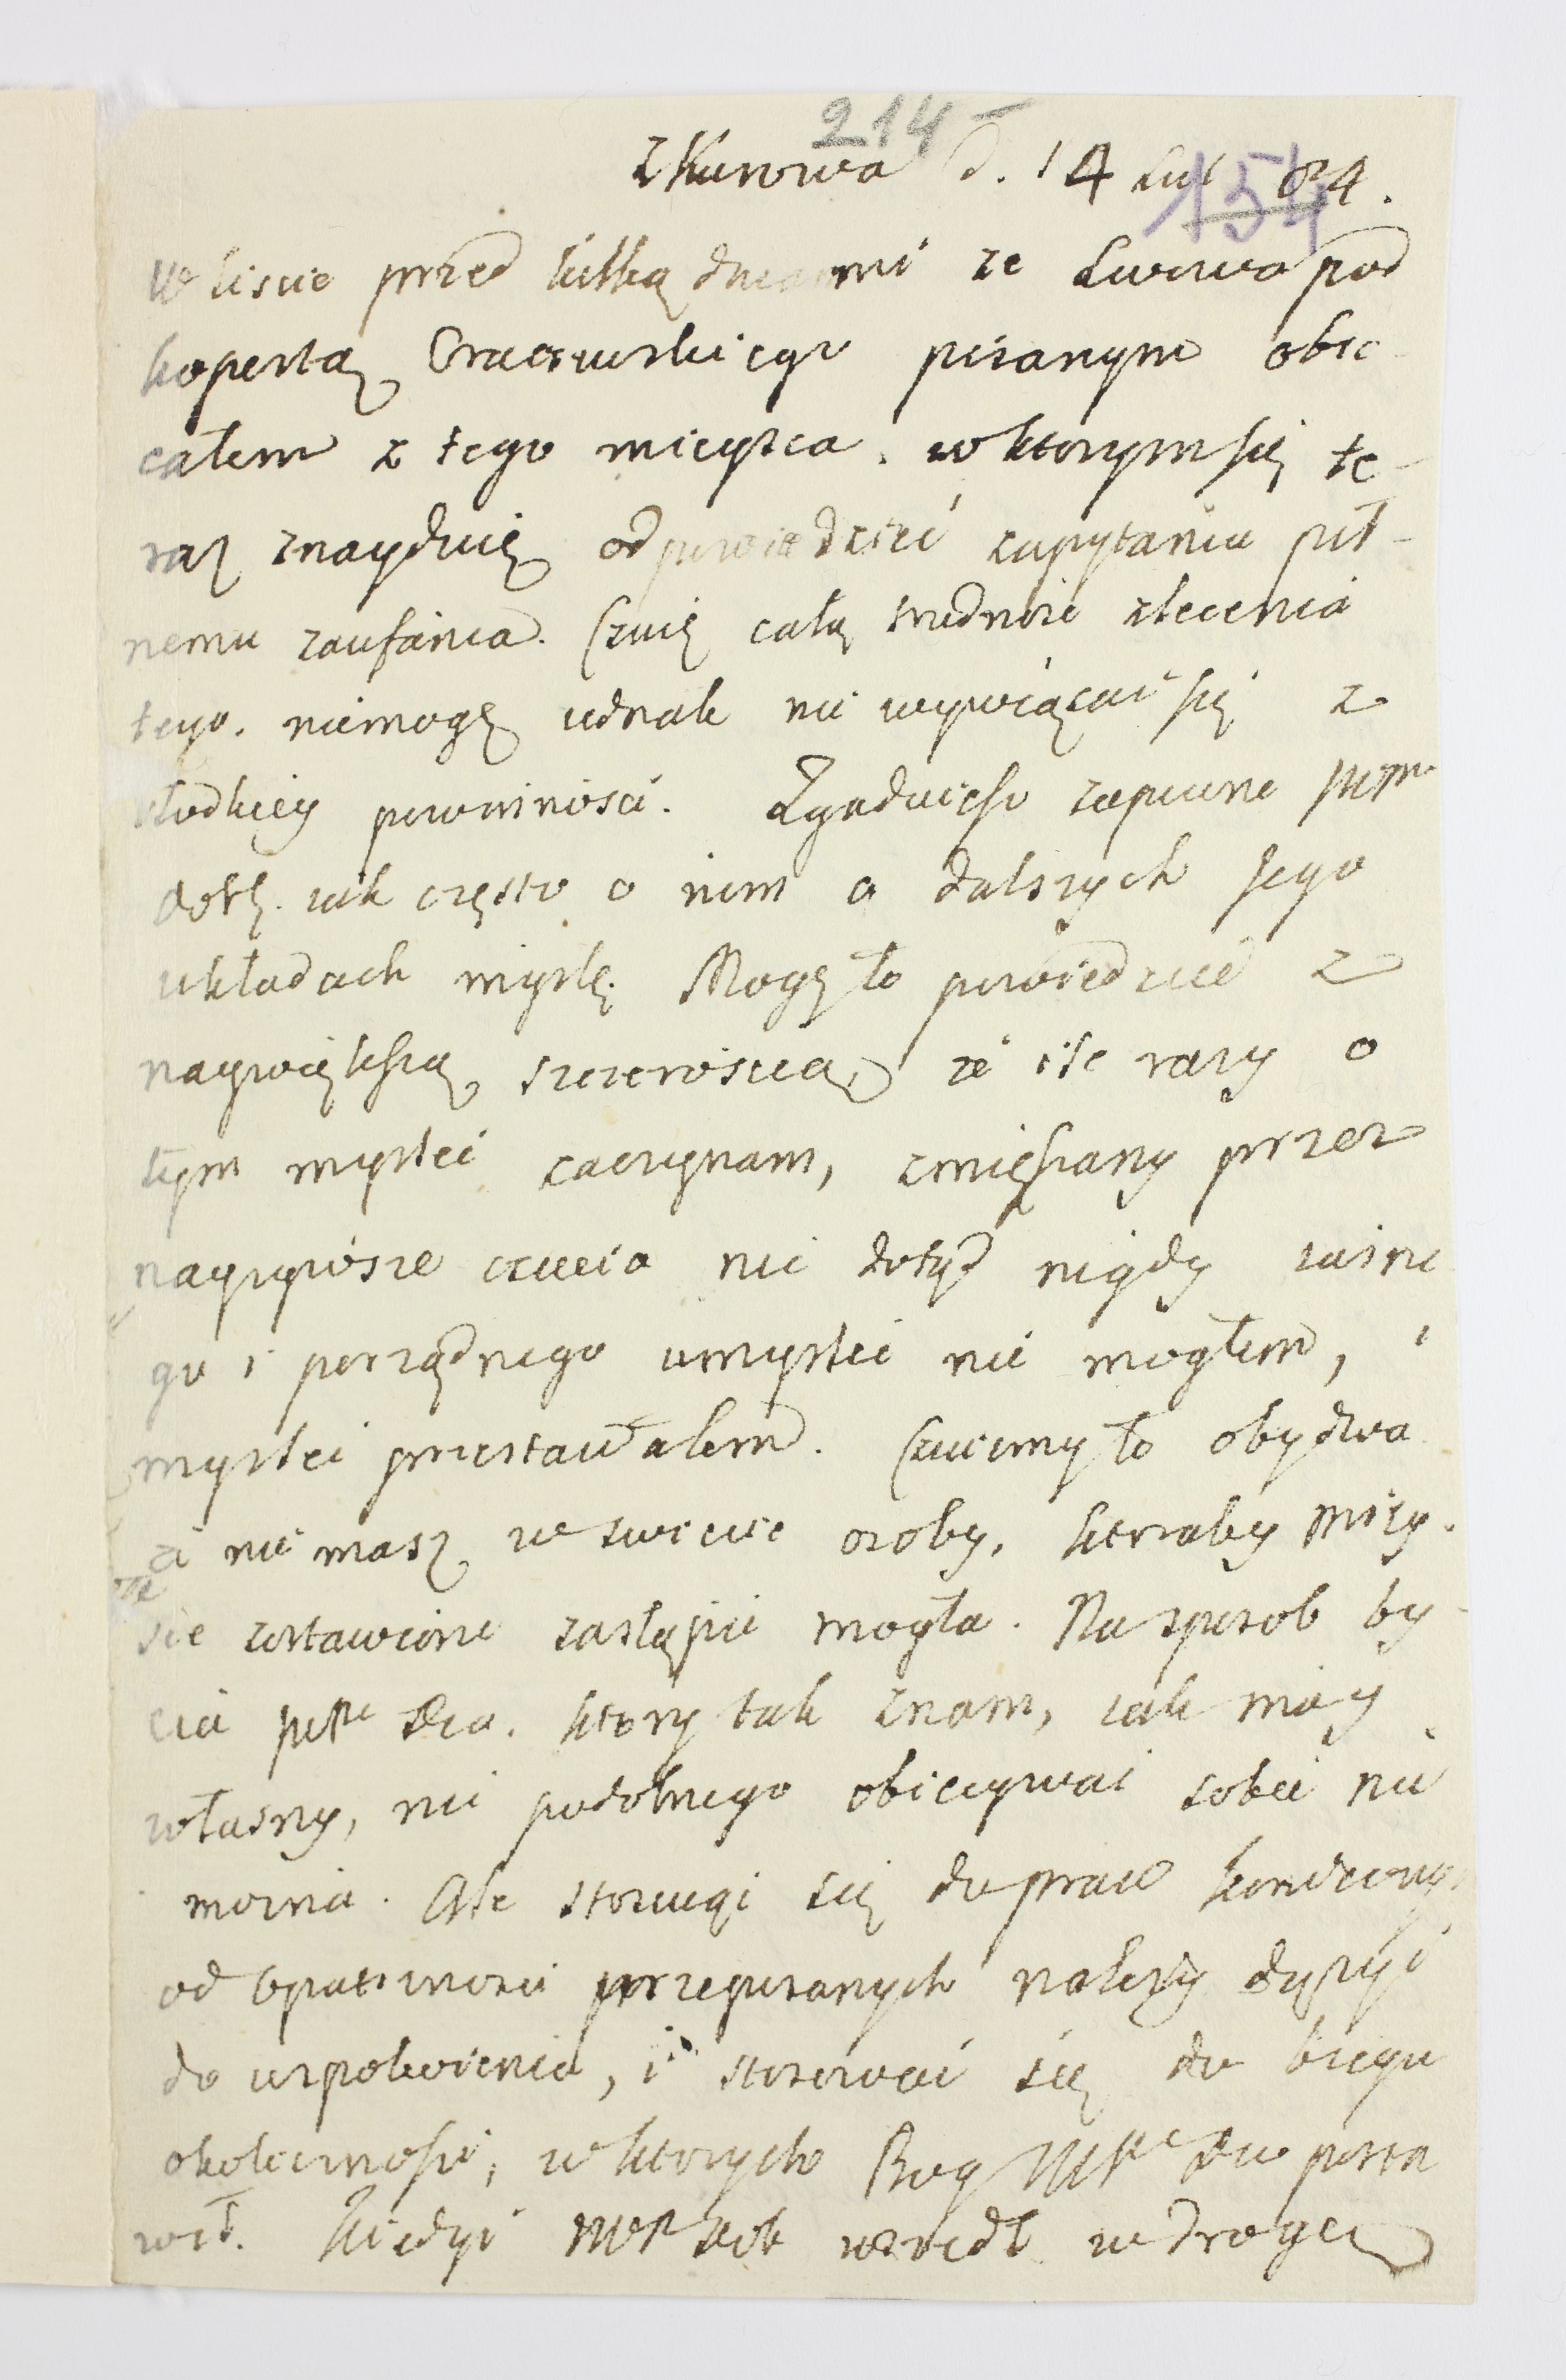 214 -
z Kurowa d. 14 Lut 84.
154
W liscie przed kilką dniami ze Lwowa pod
kopertą pisanym obie
całem z tego mieysca, w ktorym się te-
raz znayduię odpowiedziéć zapytaniu pił-
nemu zaufania. Czuię całą trudność zlecenia
tego, niemogę iednak nie wywiązać się z
słodkiey powinności. Zgaduiesz zapewne
iak często o nim o dalszych Jego
układach myslę. Mogę to powiedzieć z
naywiększą szczerością, że ile razy o
tym mysleć zaczynam, zmięszany przez
nayżywsze czucia nic dotąd nigdy iasne
go i porządnego umysleć nie mogłem, i
mysleć przestawałem. Czuiemy to obydwa
że nie masz w świecie osoby, ktoraby mieys-
sce zostawione zastąpić mogła. Na sposob by-
cia ktory tak znam, iak moy
własny, nic podobnego obiecywać sobie nie
można. Ale stosuiąc się do praw
od opatrzności przepisanych należy dążyć
do uspokoienia, i stosować się do biegu
okoliczności, w ktorych Bog posta
wił. Kiedyś wszedł w drogę